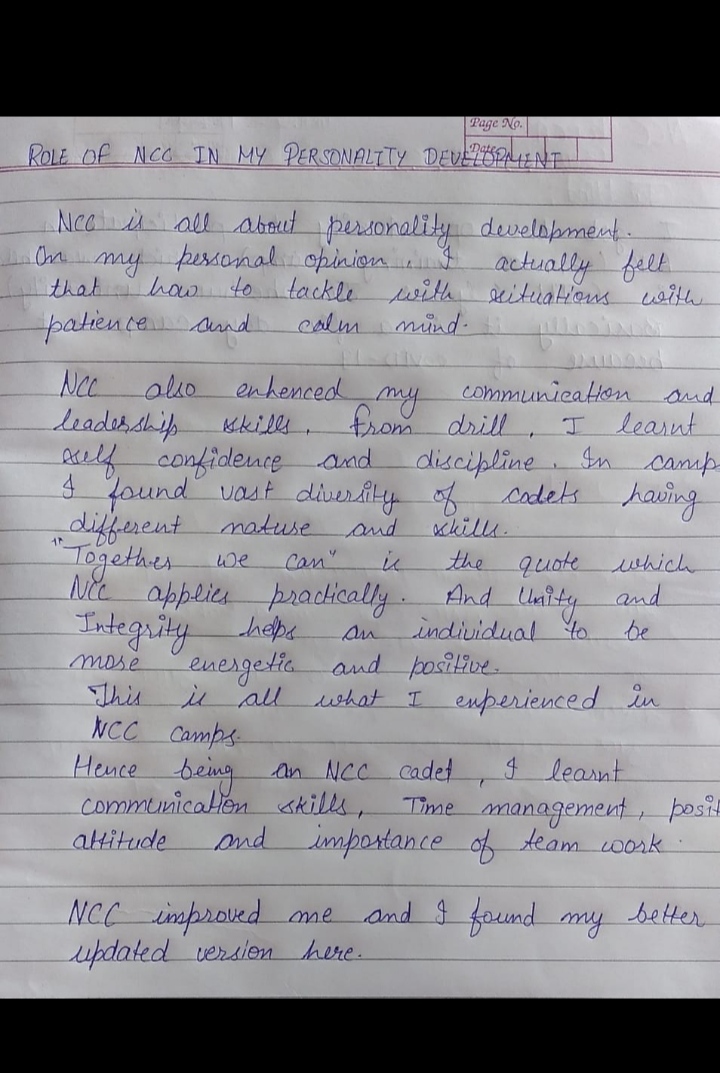 Page No.
Date
ROLE OF NCC IN MY PERSONALITY DEVELOPMENT
NCC is all about personality development.
In my personal opinion, I actually felt
that how to tackle with situations with
patience and calm mind.
NCC also enhenced my communication and
leadership skills. From drill, I learnt
self confidence and discipline. In camp
I found vast diversity of cadets having
different nature and skills.
"Together we can" is the quote which
NCC applies practically. And Unity and
Integrity helps an individual to be
more energetic and positive.
This is all what I experienced in
NCC camps.
Hence being an NCC cadet, I learnt
communication skills, Time management, posit
attitude and importance of team work.
NCC improved me and I found my better
updated version here.